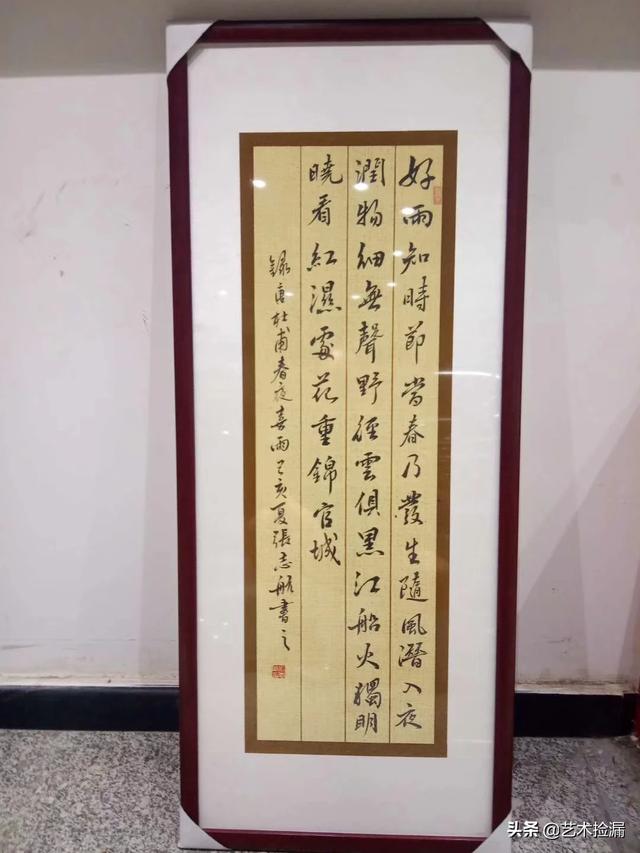 好雨知時節當春乃發生隨風潛入夜
潤物細無聲野徑雲俱黑江船火獨明
曉看紅濕處花重錦官城
錄唐杜甫春夜喜雨己亥夏張志航書之
头条@艺术捡漏